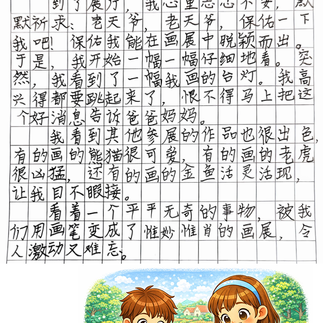 到了展厅，我心里忐忑不安，默
默祈求：老天爷，老天爷，保佑一下
我吧！保佑我能在画展中脱颖而出。
于是，我开始一幅一幅仔细地看。突
然，我看到了一幅我画的台灯。我高
兴得都要跳起来了，恨不得马上把这
个好消息告诉爸爸妈妈。
我看到其他参展的作品也很出色，
有的画的熊猫很可爱，有的画的老虎
很凶猛，还有的画的金鱼活灵活现，
让我目不暇接。
看着一个平平无奇的事物，被我
们用画笔变成了惟妙惟肖的画展，令
人激动又难忘。